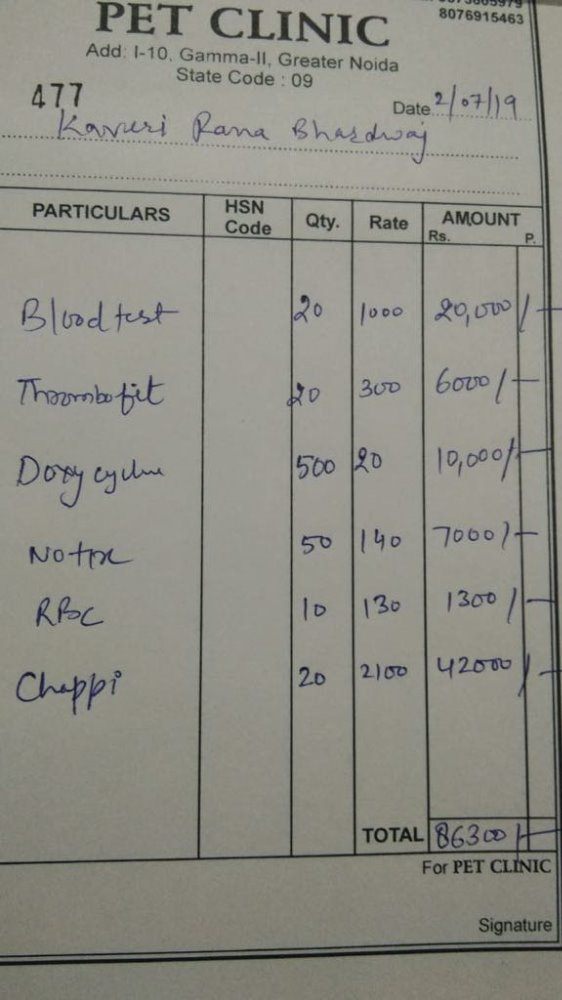 PET CLINIC
8076915463
Add: I-10, Gamma-II, Greater Noida
State Code : 09
477
Date 2/07/19
Kaveri Rana Bhardwaj
PARTICULARS HSN Code Qty. Rate AMOUNT Rs. P.
Blood test 20 1000 20,000/-
Thrombofit 20 300 6000/-
Doxycycline 500 20 10,000/-
Notix 50 140 7000/-
RBC 10 130 1300/-
Chappi 20 2100 42000/-
TOTAL 86300/-
For PET CLINIC
Signature